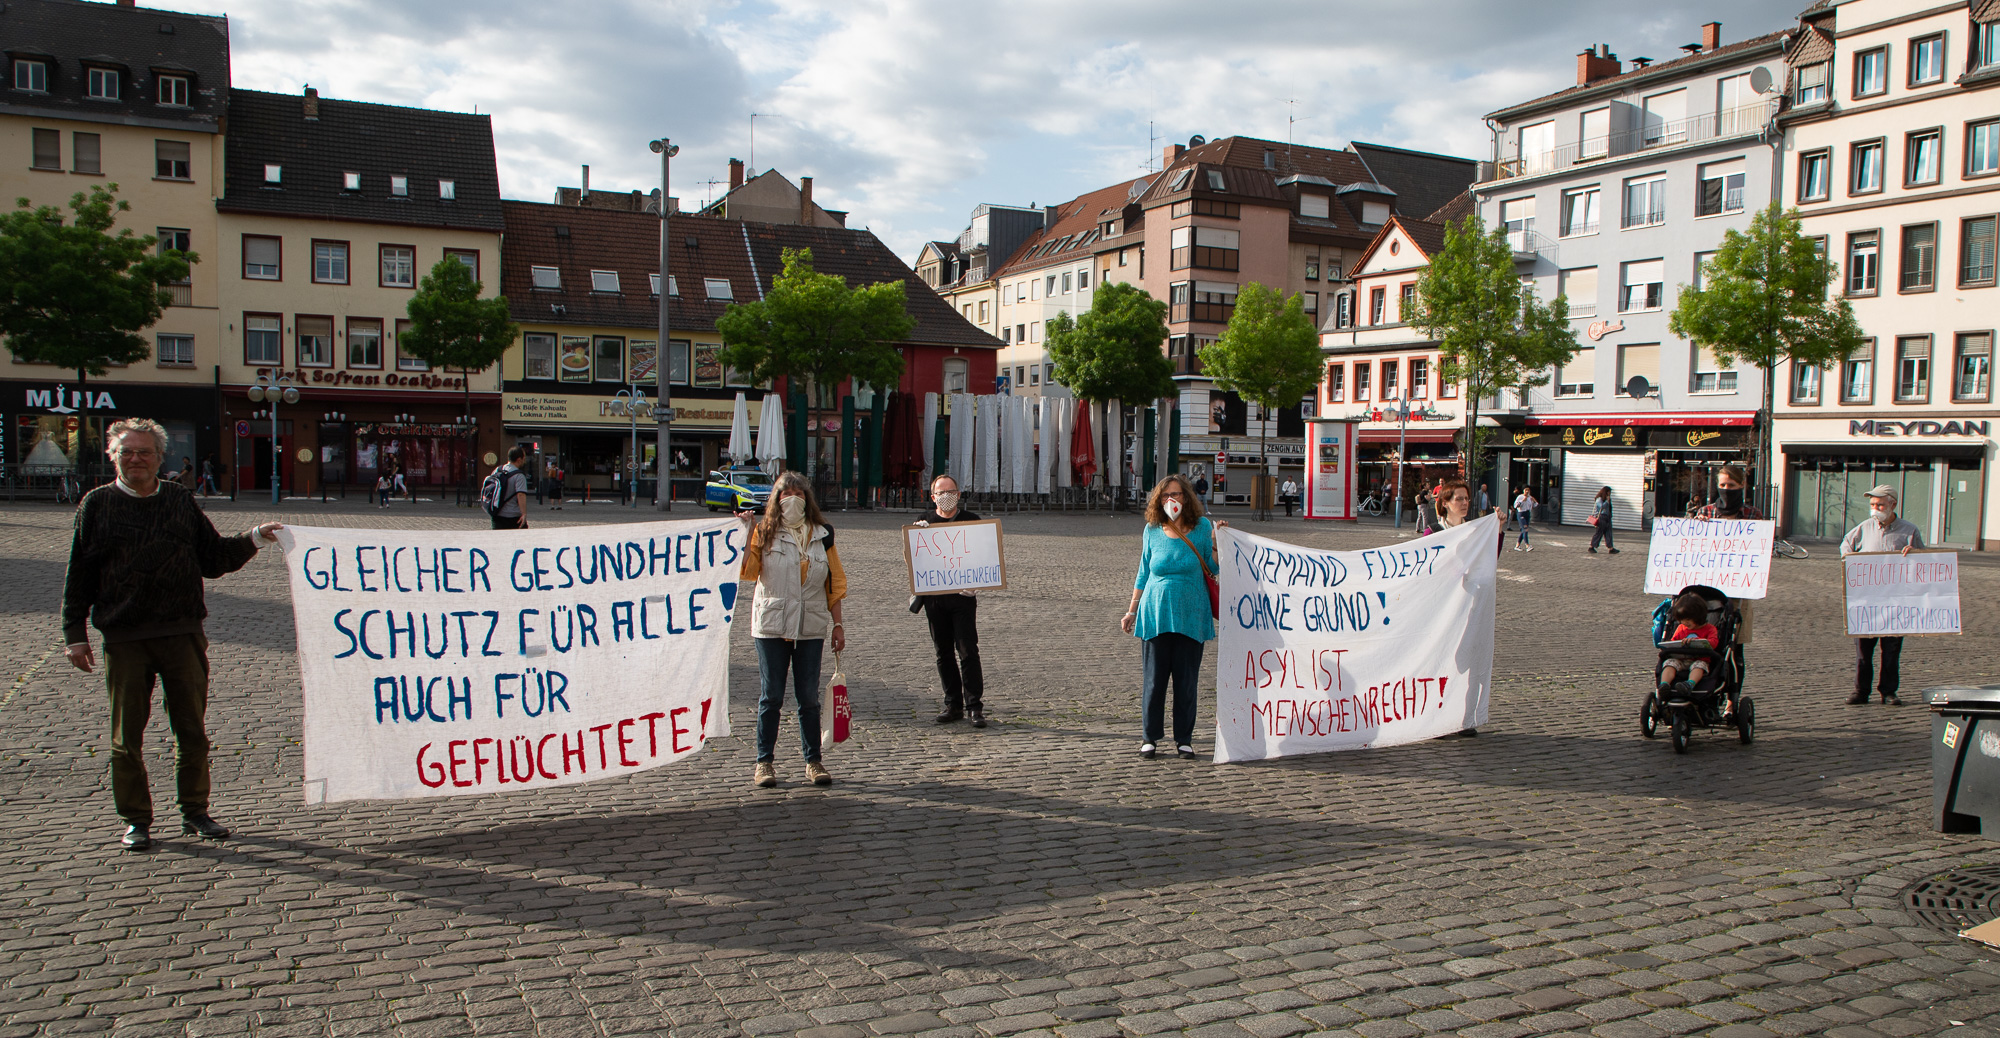 MINA
Türk Sofrası Ocakbaşı
Künefe / Katmer
Açık Büfe Kahvaltı
Lokma / Halka
Restaurant
POLIZEI
ZENGIN
Café Journal
Café Journal
MEYDAN
GLEICHER GESUNDHEITS
SCHUTZ FÜR ALLE!
AUCH FÜR
GEFLÜCHTETE!
ASYL
IST
MENSCHENRECHT
NIEMAND FLIEHT
OHNE GRUND!
ASYL IST
MENSCHENRECHT!
ABSCHOTTUNG
BEENDEN!
GEFLÜCHTETE
AUFNEHMEN!
GEFLÜCHTETE RETTEN
STATT STERBEN LASSEN!